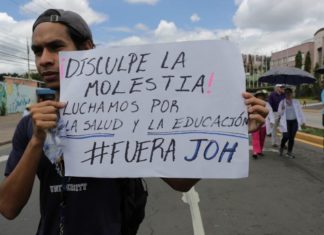 ¡DISCULPE LA
MOLESTIA!
LUCHAMOS POR
LA SALUD Y LA EDUCACIÓN
#FUERA JOH